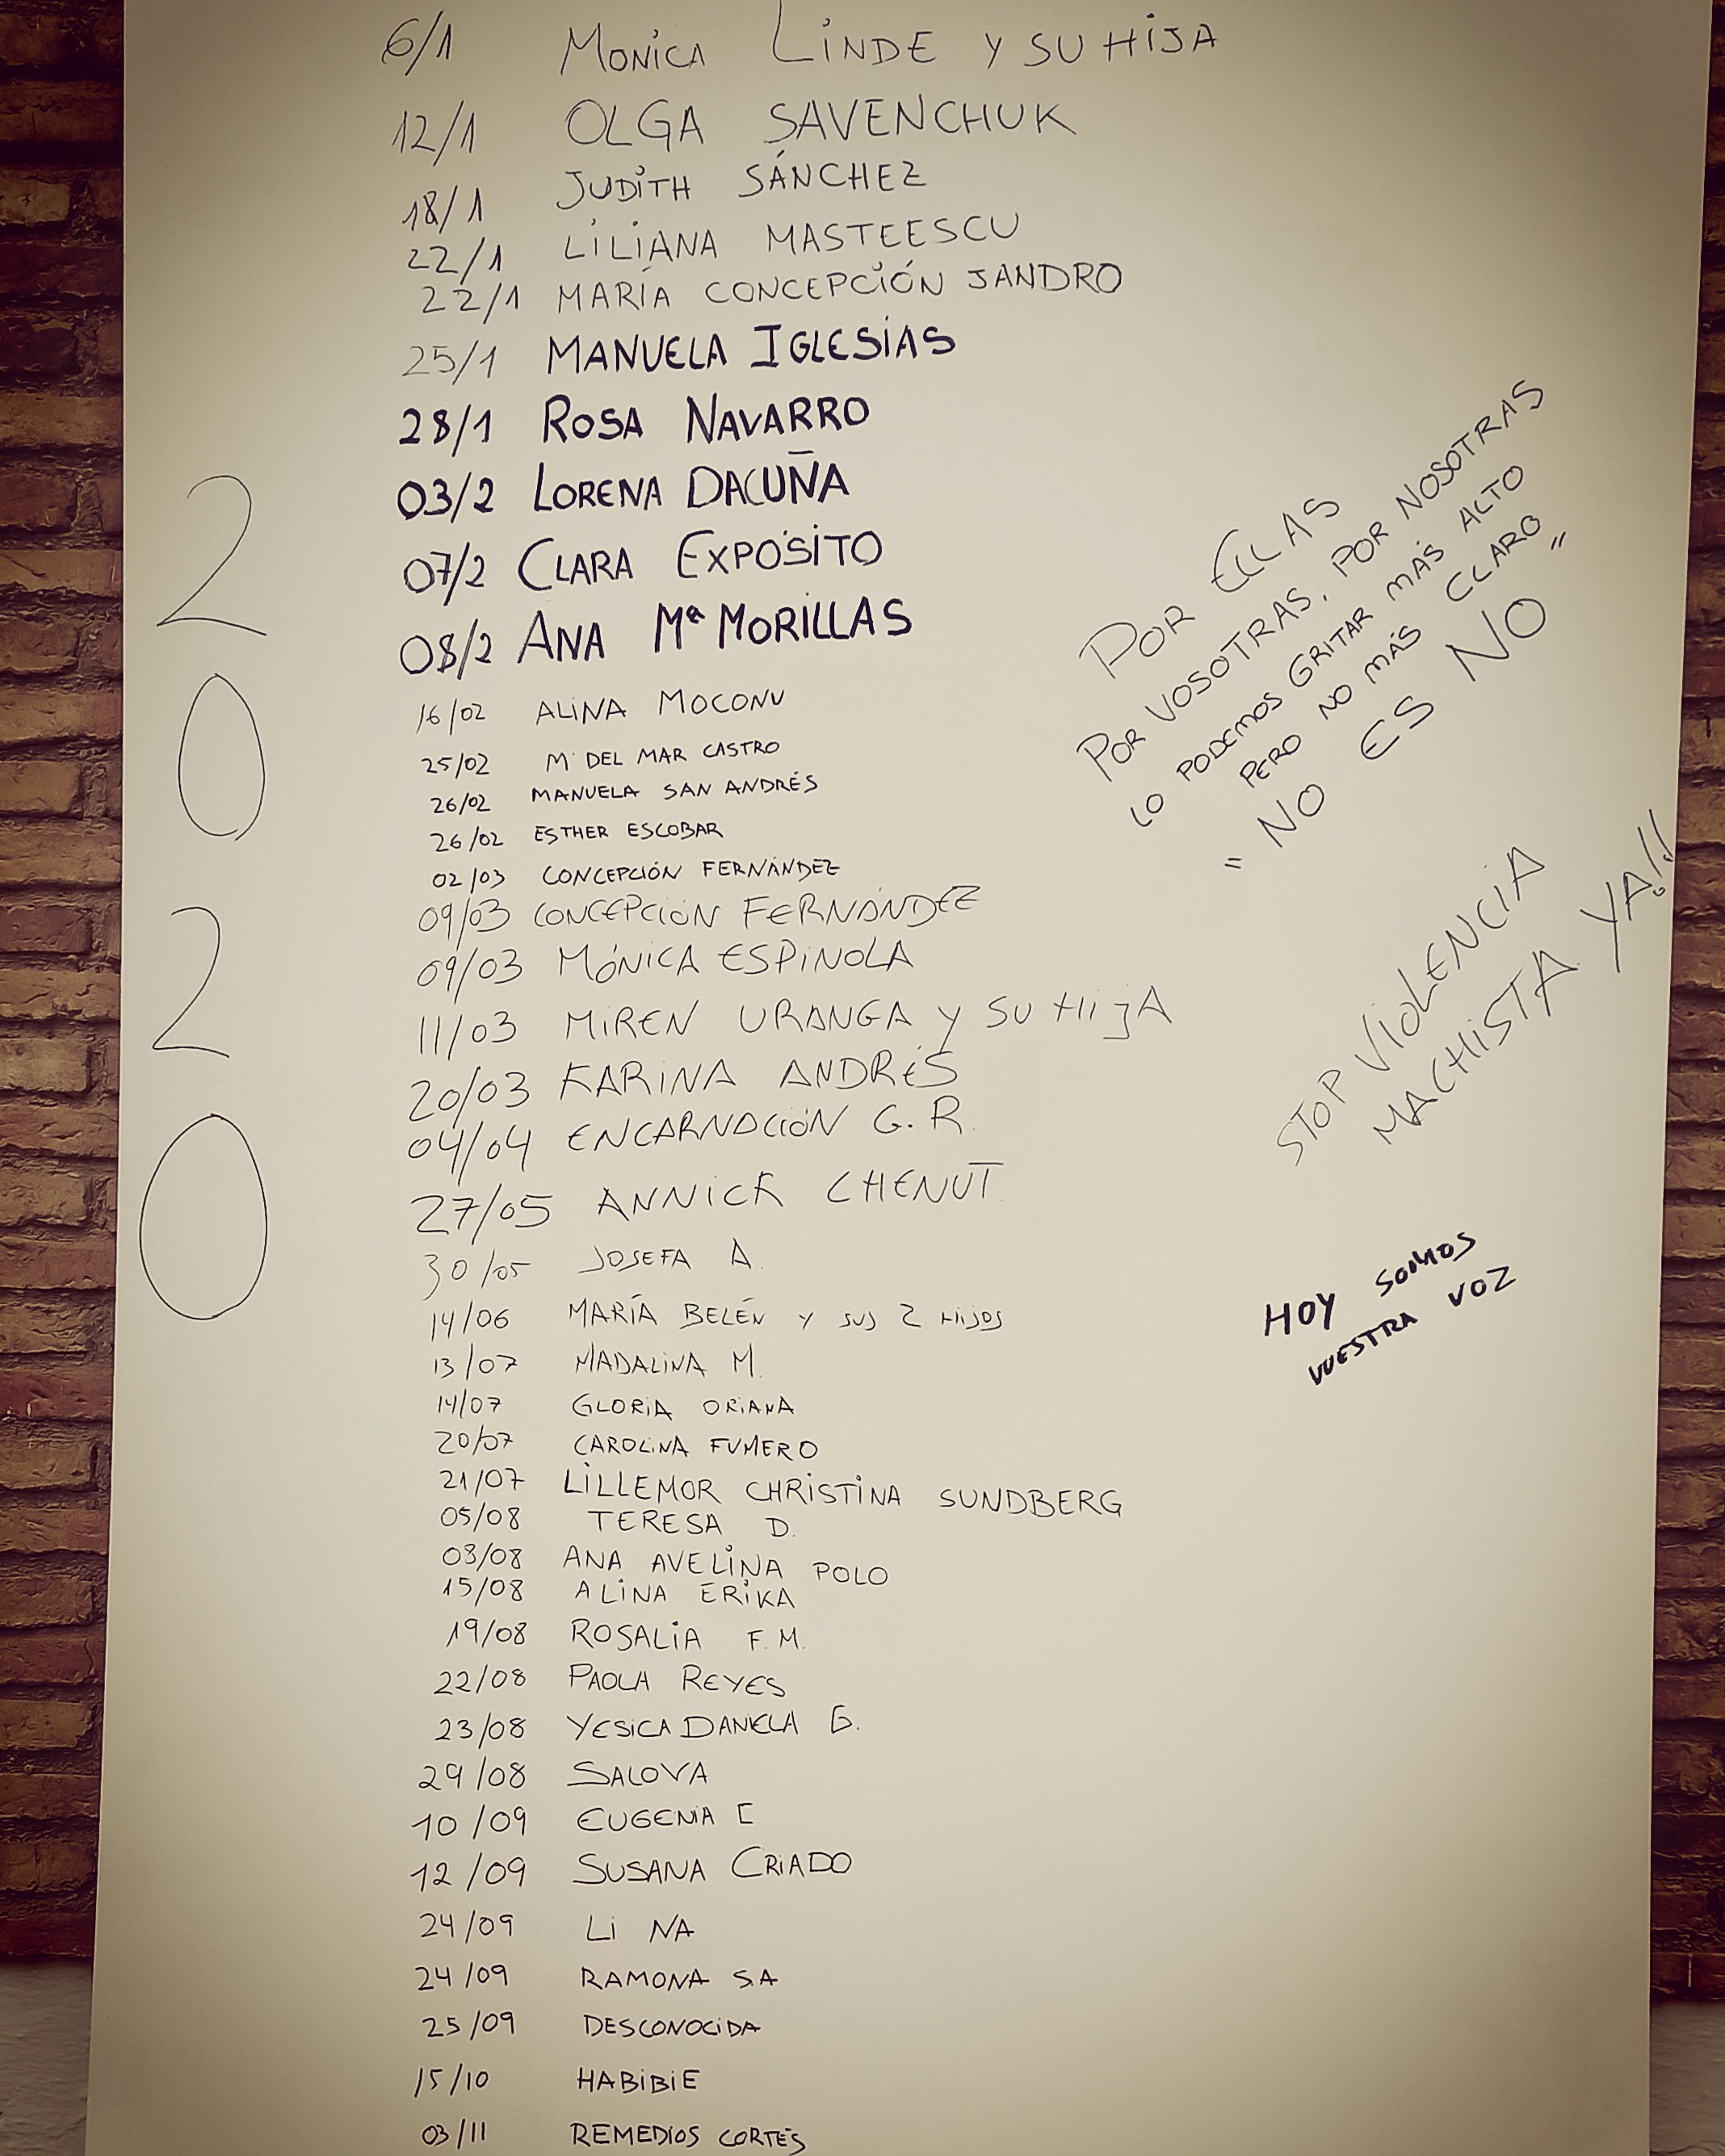 6/1 MONICA LINDE Y SU HIJA
12/1 OLGA SAVENCHUK
18/1 JUDITH SÁNCHEZ
22/1 LILIANA MASTEESCU
22/1 MARÍA CONCEPCIÓN JANDRO
25/1 MANUELA IGLESIAS
28/1 ROSA NAVARRO
03/2 LORENA DACUÑA
07/2 CLARA EXPÓSITO
08/2 ANA Mª MORILLAS
16/02 ALINA MOCONU
25/02 Mª DEL MAR CASTRO
26/02 MANUELA SAN ANDRÉS
26/02 ESTHER ESCOBAR
02/03 CONCEPCIÓN FERNÁNDEZ
09/03 CONCEPCIÓN FERNÁNDEZ
09/03 MÓNICA ESPINOLA
11/03 MIREN URANGA Y SU HIJA
20/03 KARINA ANDRÉS
04/04 ENCARNACIÓN G. R.
27/05 ANNICK CHENUT
30/05 JOSEFA A.
14/06 MARÍA BELÉN Y SUS 2 HIJOS
13/07 MADALINA M.
14/07 GLORIA ORIANA
20/07 CAROLINA FUMERO
21/07 LILLEMOR CHRISTINA SUNDBERG
05/08 TERESA D.
03/08 ANA AVELINA POLO
15/08 ALINA ERIKA
19/08 ROSALIA F. M.
22/08 PAOLA REYES
23/08 YESICA DANIELA G.
29/08 SALOVA
10/09 EUGENIA C
12/09 SUSANA CRIADO
24/09 LI NA
24/09 RAMONA S.A
25/09 DESCONOCIDA
15/10 HABIBIE
03/11 REMEDIOS CORTÉS
2
0
2
0
POR ELLAS
POR VOSOTRAS, POR NOSOTRAS
LO PODEMOS GRITAR MÁS ALTO
PERO NO MÁS CLARO
= NO ES NO "
STOP VIOLENCIA
MACHISTA YA!!
HOY SOMOS
VUESTRA VOZ